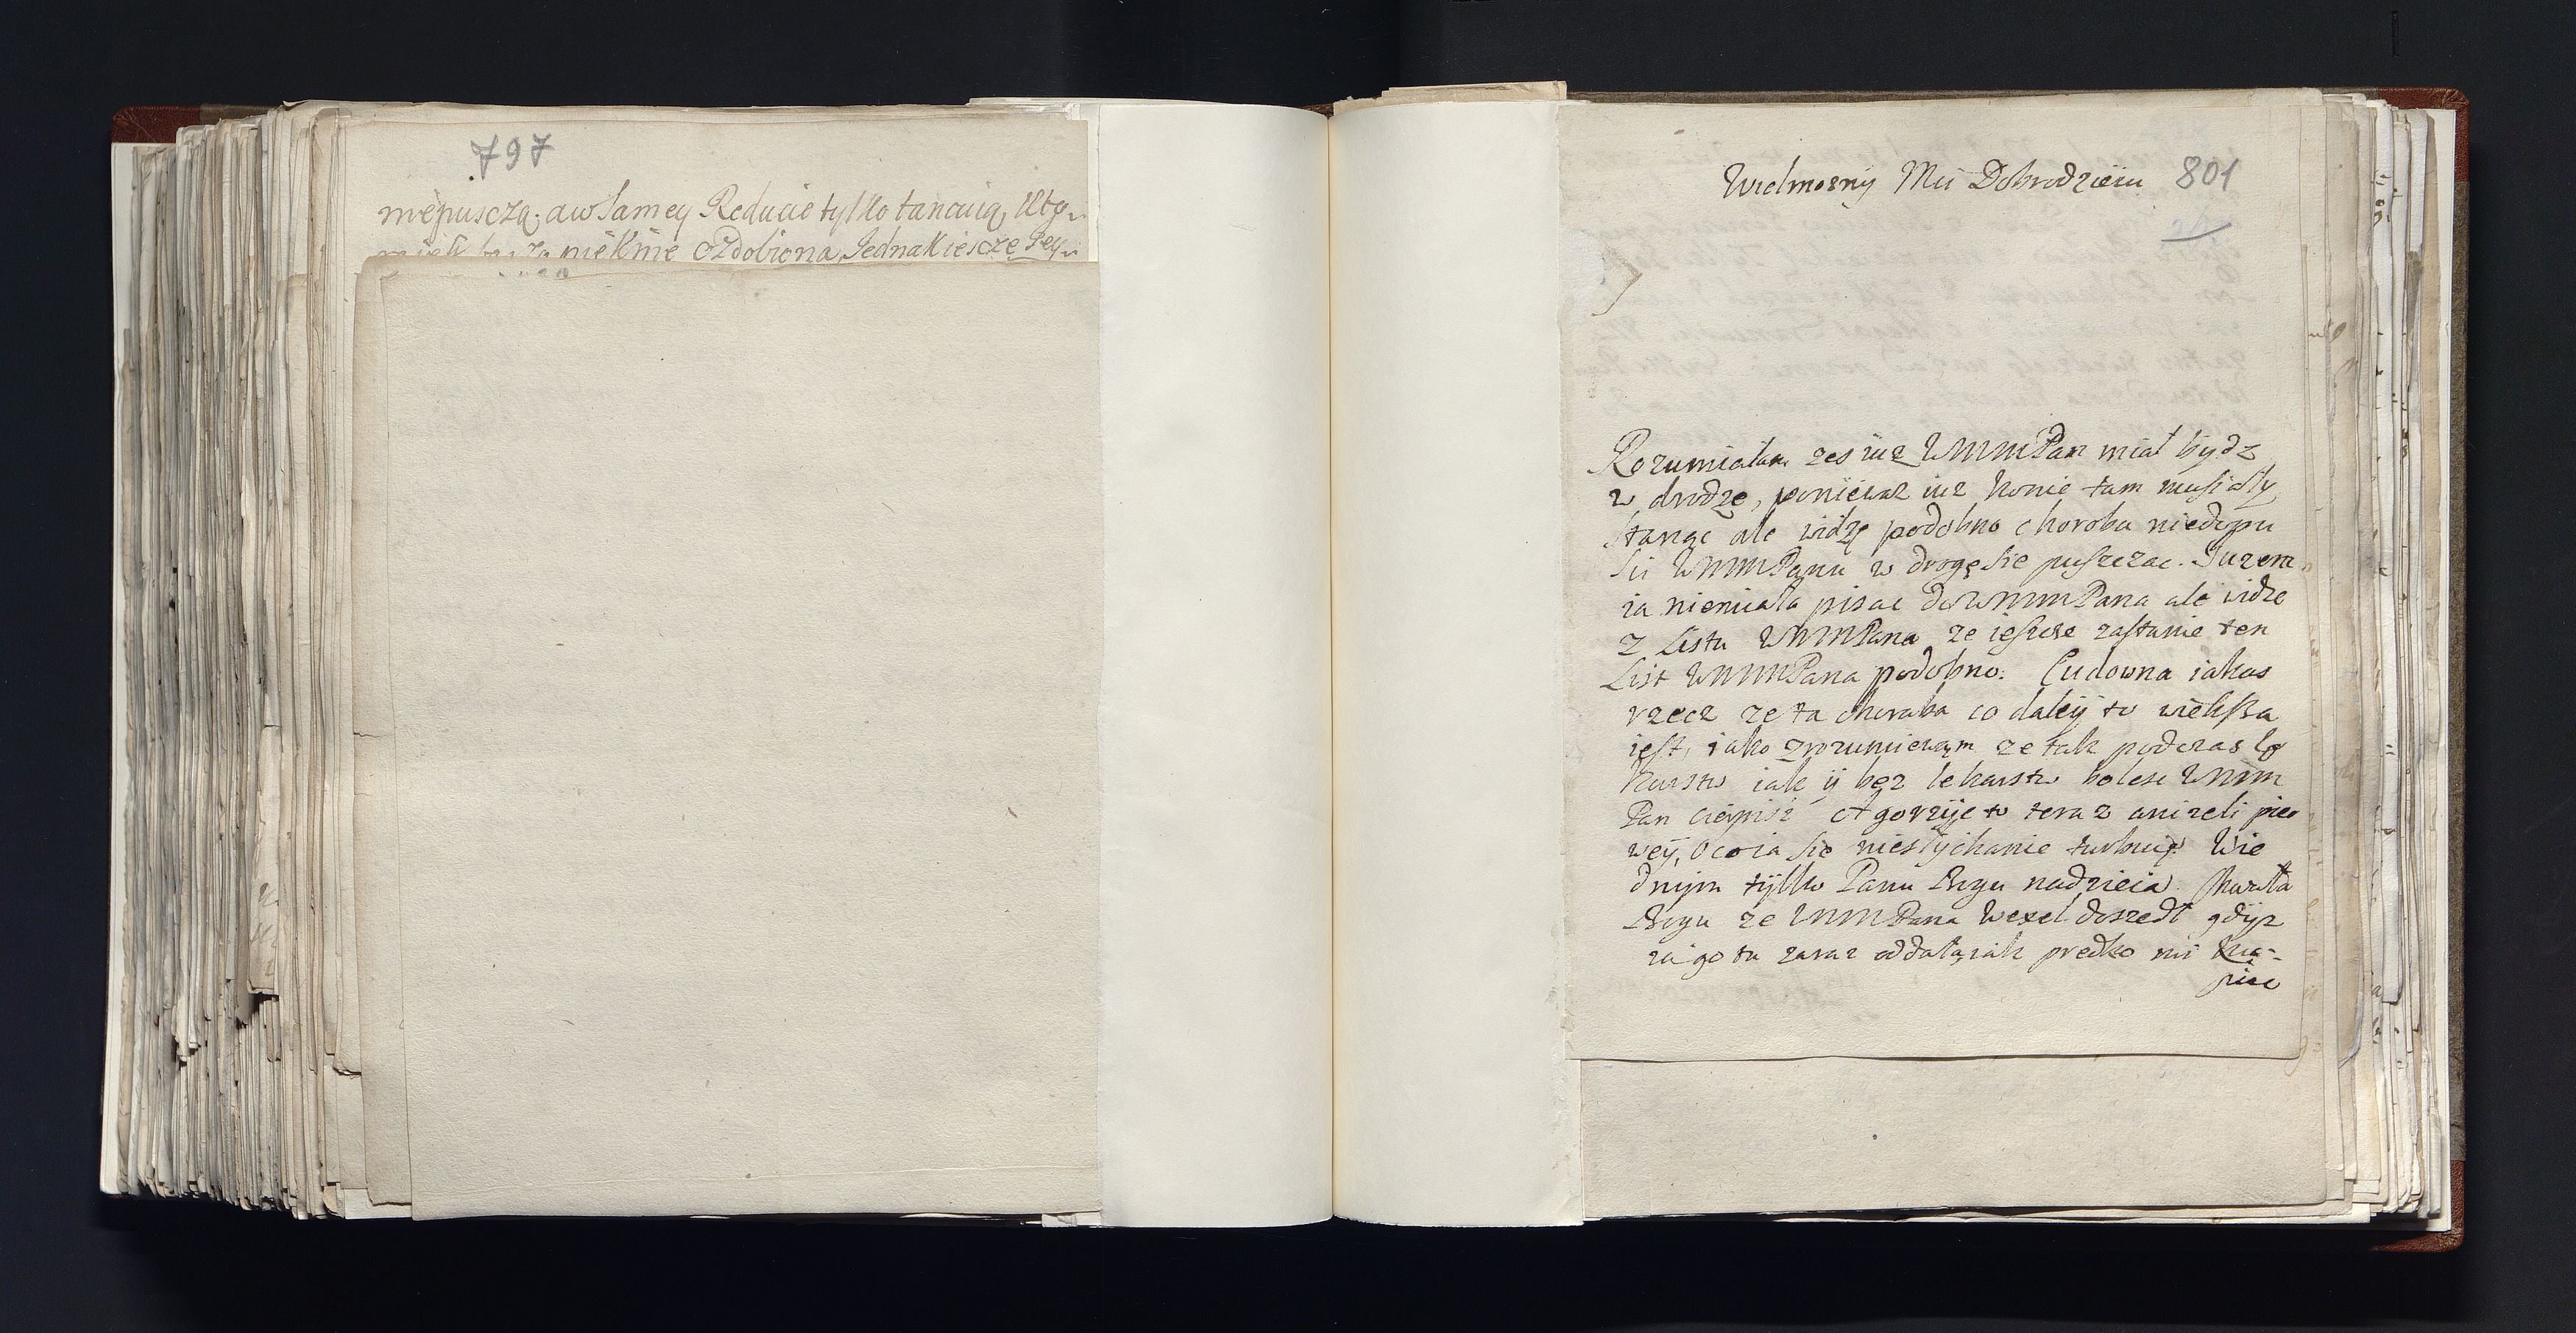 797
niepuszczą. aw Samey Reducie tylko tancuią,
piеknie ozdobiona, Jednak iescze
801
Wielmozny Mci Dobrodzieiu
Rozumiałam zes iuz WMMPan miał bydz
w drodze, poniewaz iuz konie tam musiały
stanąc ale widzę podobno choroba niedopu
sci WMMPanu w drogę sie puszczac. Juzem
ia niemiała pisac do WMMPana ale widze
z Listu WMMPana ze ieszcze zastanie ten
List WMMPana podobno. Cudowna iakas
rzecz ze ta choroba co daley to większa
iest, iako zrozumiewam ze tak podczas le
karstw iak y bez lekarstw bolesc WMM
Pan cierpisz et gorzye to teraz anizeli pier
wey, oco ia sie niesłychanie turbuię. Wie
dnym tylko Panu Bogu nadzieia. Chwała
Bogu ze WMMPana Wexel doszedł gdyz
ia go tu zaraz oddała, iak predko mi Ku-
piec